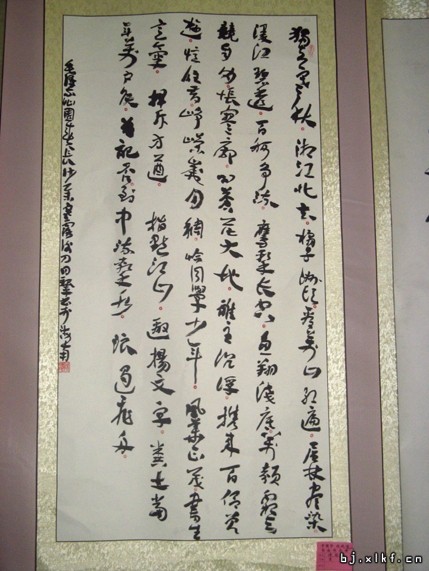 独立寒秋湘江北去橘子洲头看万山红遍层林尽染
漫江碧透百舸争流鹰击长空鱼翔浅底万类霜天
竞自由怅寥廓问苍茫大地谁主沉浮携来百侣曾
游忆往昔峥嵘岁月稠恰同学少年风华正茂书生
意气挥斥方遒指点江山激扬文字粪土当
年万户侯曾记否到中流击水浪遏飞舟
毛泽东沁园春长沙
bj.xlkf.cn